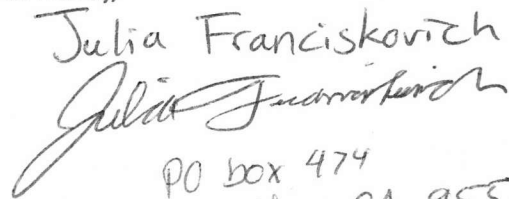 Julia Franciskovich
Julia Franciskovich
PO box 474